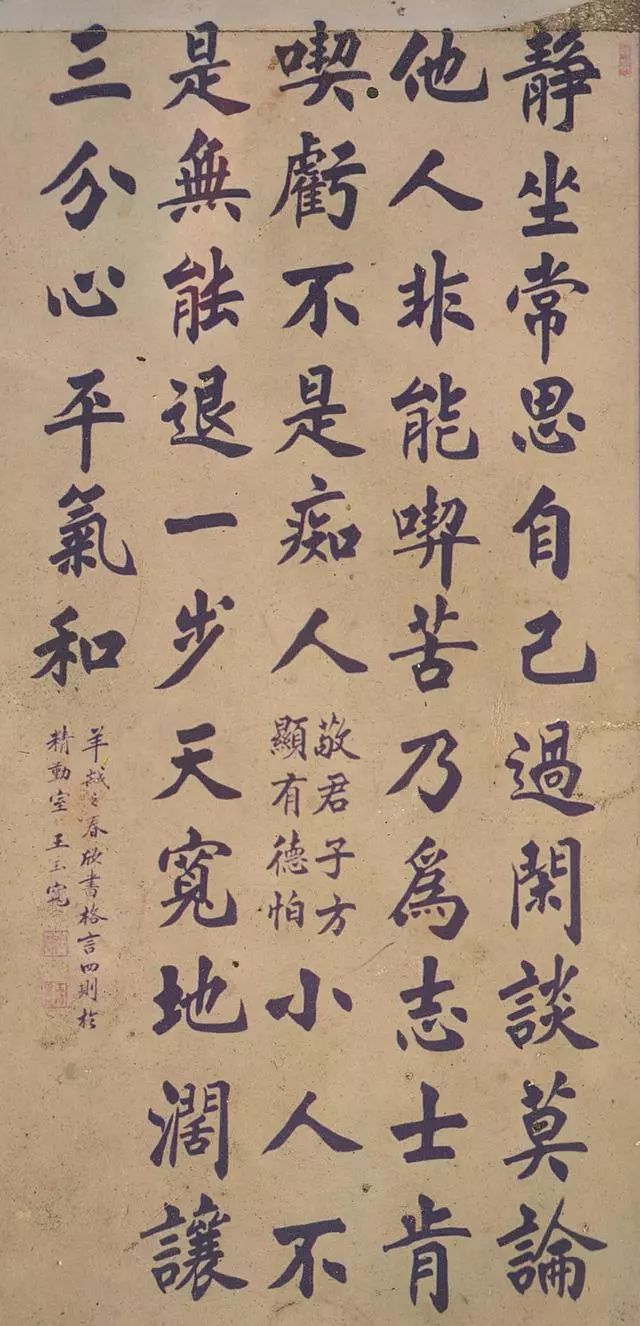 靜坐常思自己過閑談莫論
他人非能喫苦乃爲志士肯
喫虧不是痴人敬君子方
顯有德怕小人不
是無能退一步天寬地濶讓
三分心平氣和
春欣書格言四則於
精勤室王玉寬